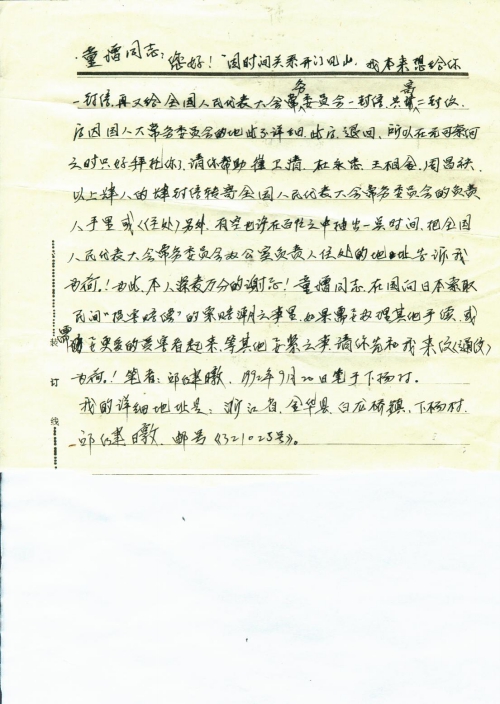 童谭同志：您好！因时间关系开门见山，我本来想给你
一封信，再又给全国人民代表大会常务委员会一封信，共寄二封信，
后因国人大常务委员会的地址不详细，此信退回，所以在无可奈何
之时只好拜托你，请你帮助 王相金，周昌秩
以上肆人的 肆封信转寄全国人民代表大会常务委员会的负责
人手里或《住处》另外，有空也许在百忙之中抽出一点时间，把全国
人民代表大会常务委员会办公室负责人住处的地址告诉我
为荷。！为此，本人深表万分的谢意！童谭同志，在国向日本索取
民间“损害赔偿”的索赔 之事里，如果需要办理其他手续，或
需要更多的受害者起来，等其他要紧之事，请你先和我来仪《通仪》
为荷。！笔者：邱健暾，1992年9月20日笔于下杨村。
我的详细地址是：浙江省，金华县，白龙桥镇，下杨村，
邱健暾，邮号《321025号》。
装
订
线